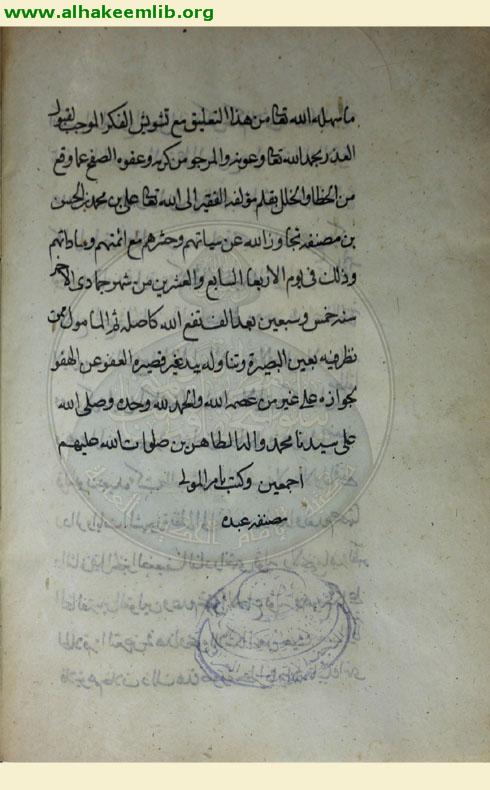 www.alhakeemlib.org
ما سهله الله تعا من هذا التعليق مع تشويش الفكر الموجب لقبول
العذر بحمد الله تعا وعونه والمرجو من كرمه وعفوه الصفح عما وقع
من الخطا والخلل بقلم مؤلفه الفقير الى الله تعا على بن محمد بن الحسن
بن مصنفه تجاوز الله عن سياتهم وحشرهم مع ائمتهم وساداتهم
وذلك فى يوم الاربعا السابع والعشرين من شهر جمادى الاخر
سنه خمس وسبعين بعد الف نفع الله كاصله ثم المامول ممن
نظر فيه بعين البصيرة وتناوله بيد غير قصيره العفو عن الهفو
لجوازه على غير من عصمه الله والحمد لله وحده وصلى الله
على سيدنا محمد واله الطاهرين صلوات الله عليهم
اجمعين وكتب بامر المولى
مصنفه عبده